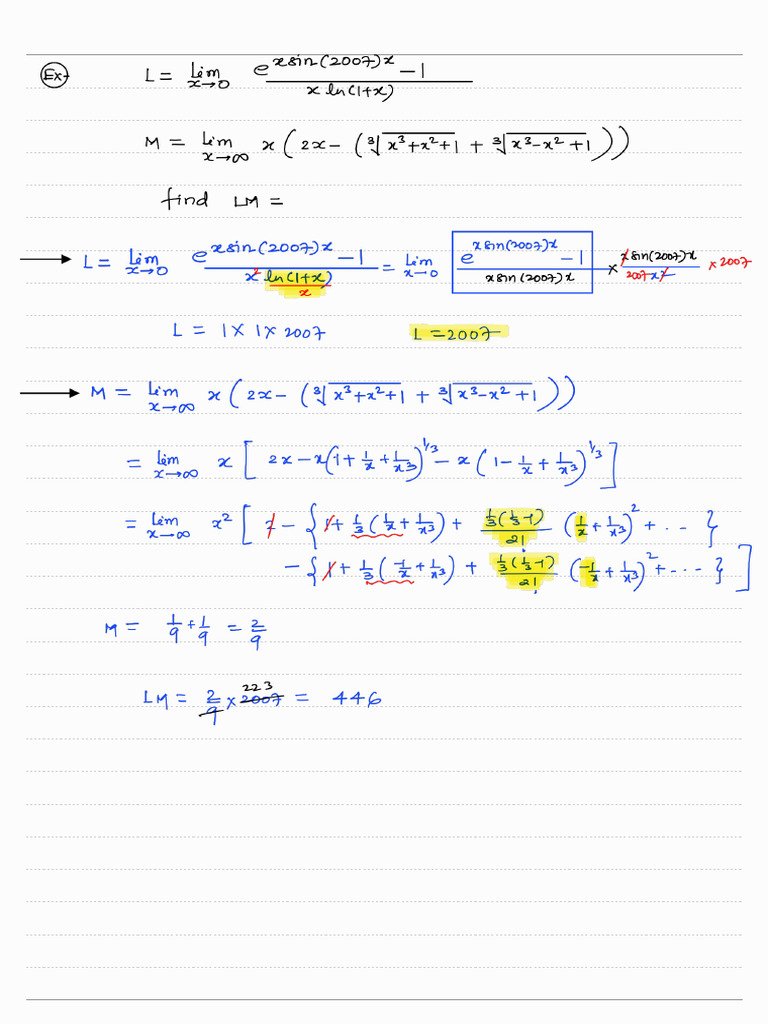 Ex- L = Lim x→0 (e^(x sin(2007)x) − 1) / (x ln(1+x))
M = Lim x→∞ x(2x − (∛(x³+x²+1) + ∛(x³−x²+1)))
find LM =
→ L = Lim x→0 (e^(x sin(2007)x) − 1) / (x² ln(1+x)/x) = Lim x→0 (e^(x sin(2007)x) − 1) / (x sin(2007)x) × (x sin(2007)x) / (2007 x²) × 2007
L = 1 × 1 × 2007 L = 2007
→ M = Lim x→∞ x(2x − (∛(x³+x²+1) + ∛(x³−x²+1)))
= Lim x→∞ x[2x − x(1 + 1/x + 1/x³)^(1/3) − x(1 − 1/x + 1/x³)^(1/3)]
= Lim x→∞ x²[2 − {1 + 1/3(1/x + 1/x³) + (1/3(1/3−1))/2! (1/x + 1/x³)² + ... }
− {1 + 1/3(−1/x + 1/x³) + (1/3(1/3−1))/2! (−1/x + 1/x³)² + ... }]
M = 1/9 + 1/9 = 2/9
LM = 2/9 × 2007 223 = 446